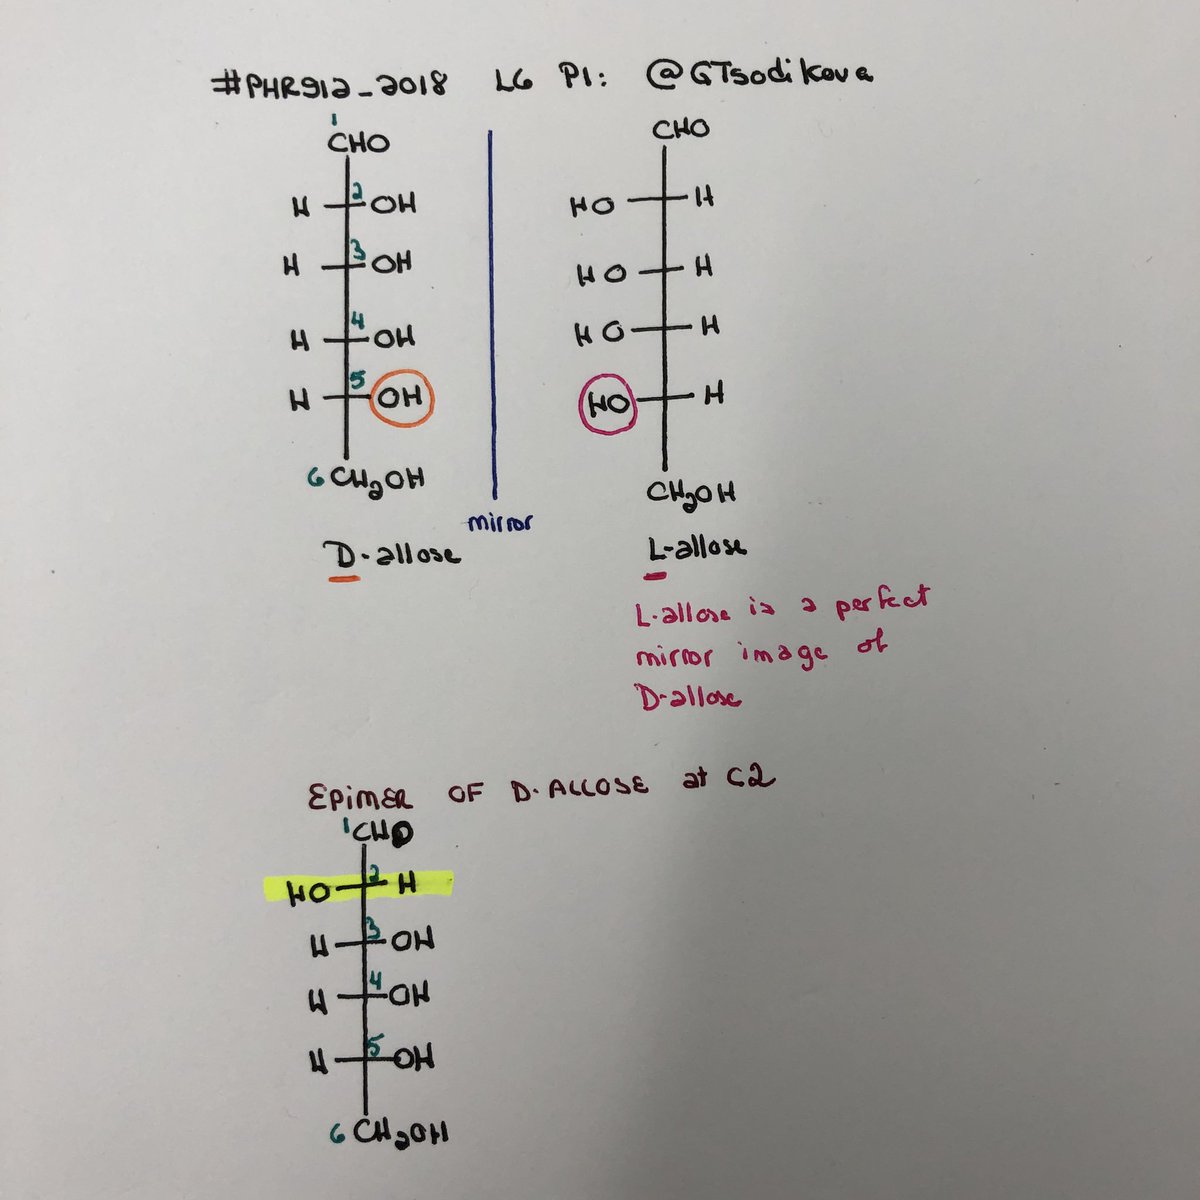 #PHR912_2018 L6 P1: @GTsodikova
1
CHO
H 2 OH
H 3 OH
H 4 OH
H 5 OH
6 CH2OH
D-allose
mirror
CHO
HO H
HO H
HO H
HO H
CH2OH
L-allose
L-allose is a perfect
mirror image of
D-allose
EPIMER OF D-ALLOSE at C2
1 CHO
HO 2 H
H 3 OH
H 4 OH
H 5 OH
6 CH2OH